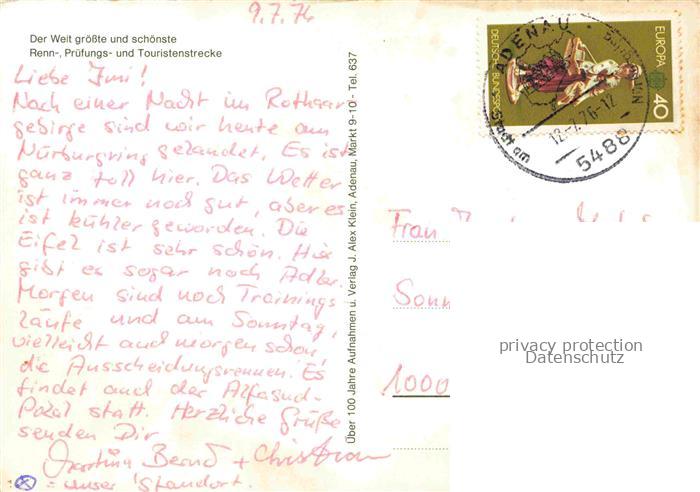 9.7.76
Der Welt größte und schönste
Renn-, Prüfungs- und Touristenstrecke
Liebe Imi!
Nach einer Nacht im Rothaar
gebirge sind wir heute am
Nürburgring gelandet. Es ist
ganz toll hier. Das Wetter
ist immer noch gut, aber es
ist kühler geworden. Die
Eifel ist sehr schön. Hier
gibt es sogar noch Adler.
Morgen sind noch Trainings
läufe und am Sonntag,
vielleicht auch morgen schon,
die Ausscheidungsrennen. Es
findet auch der Alfasud-
Pokal statt. Herzliche Grüße
senden Dir
Martina Bernd + Christian
⊗ = unser Standort.
Über 100 Jahre Aufnahmen u. Verlag J. Alex Klein, Adenau, Markt 9-10 - Tel. 637
DEUTSCHE BUNDESPOST
EUROPA
40
ADENAU
Stadt am
12.-7.76-12
5488
Frau
Sonn
1000
privacy protection
Datenschutz